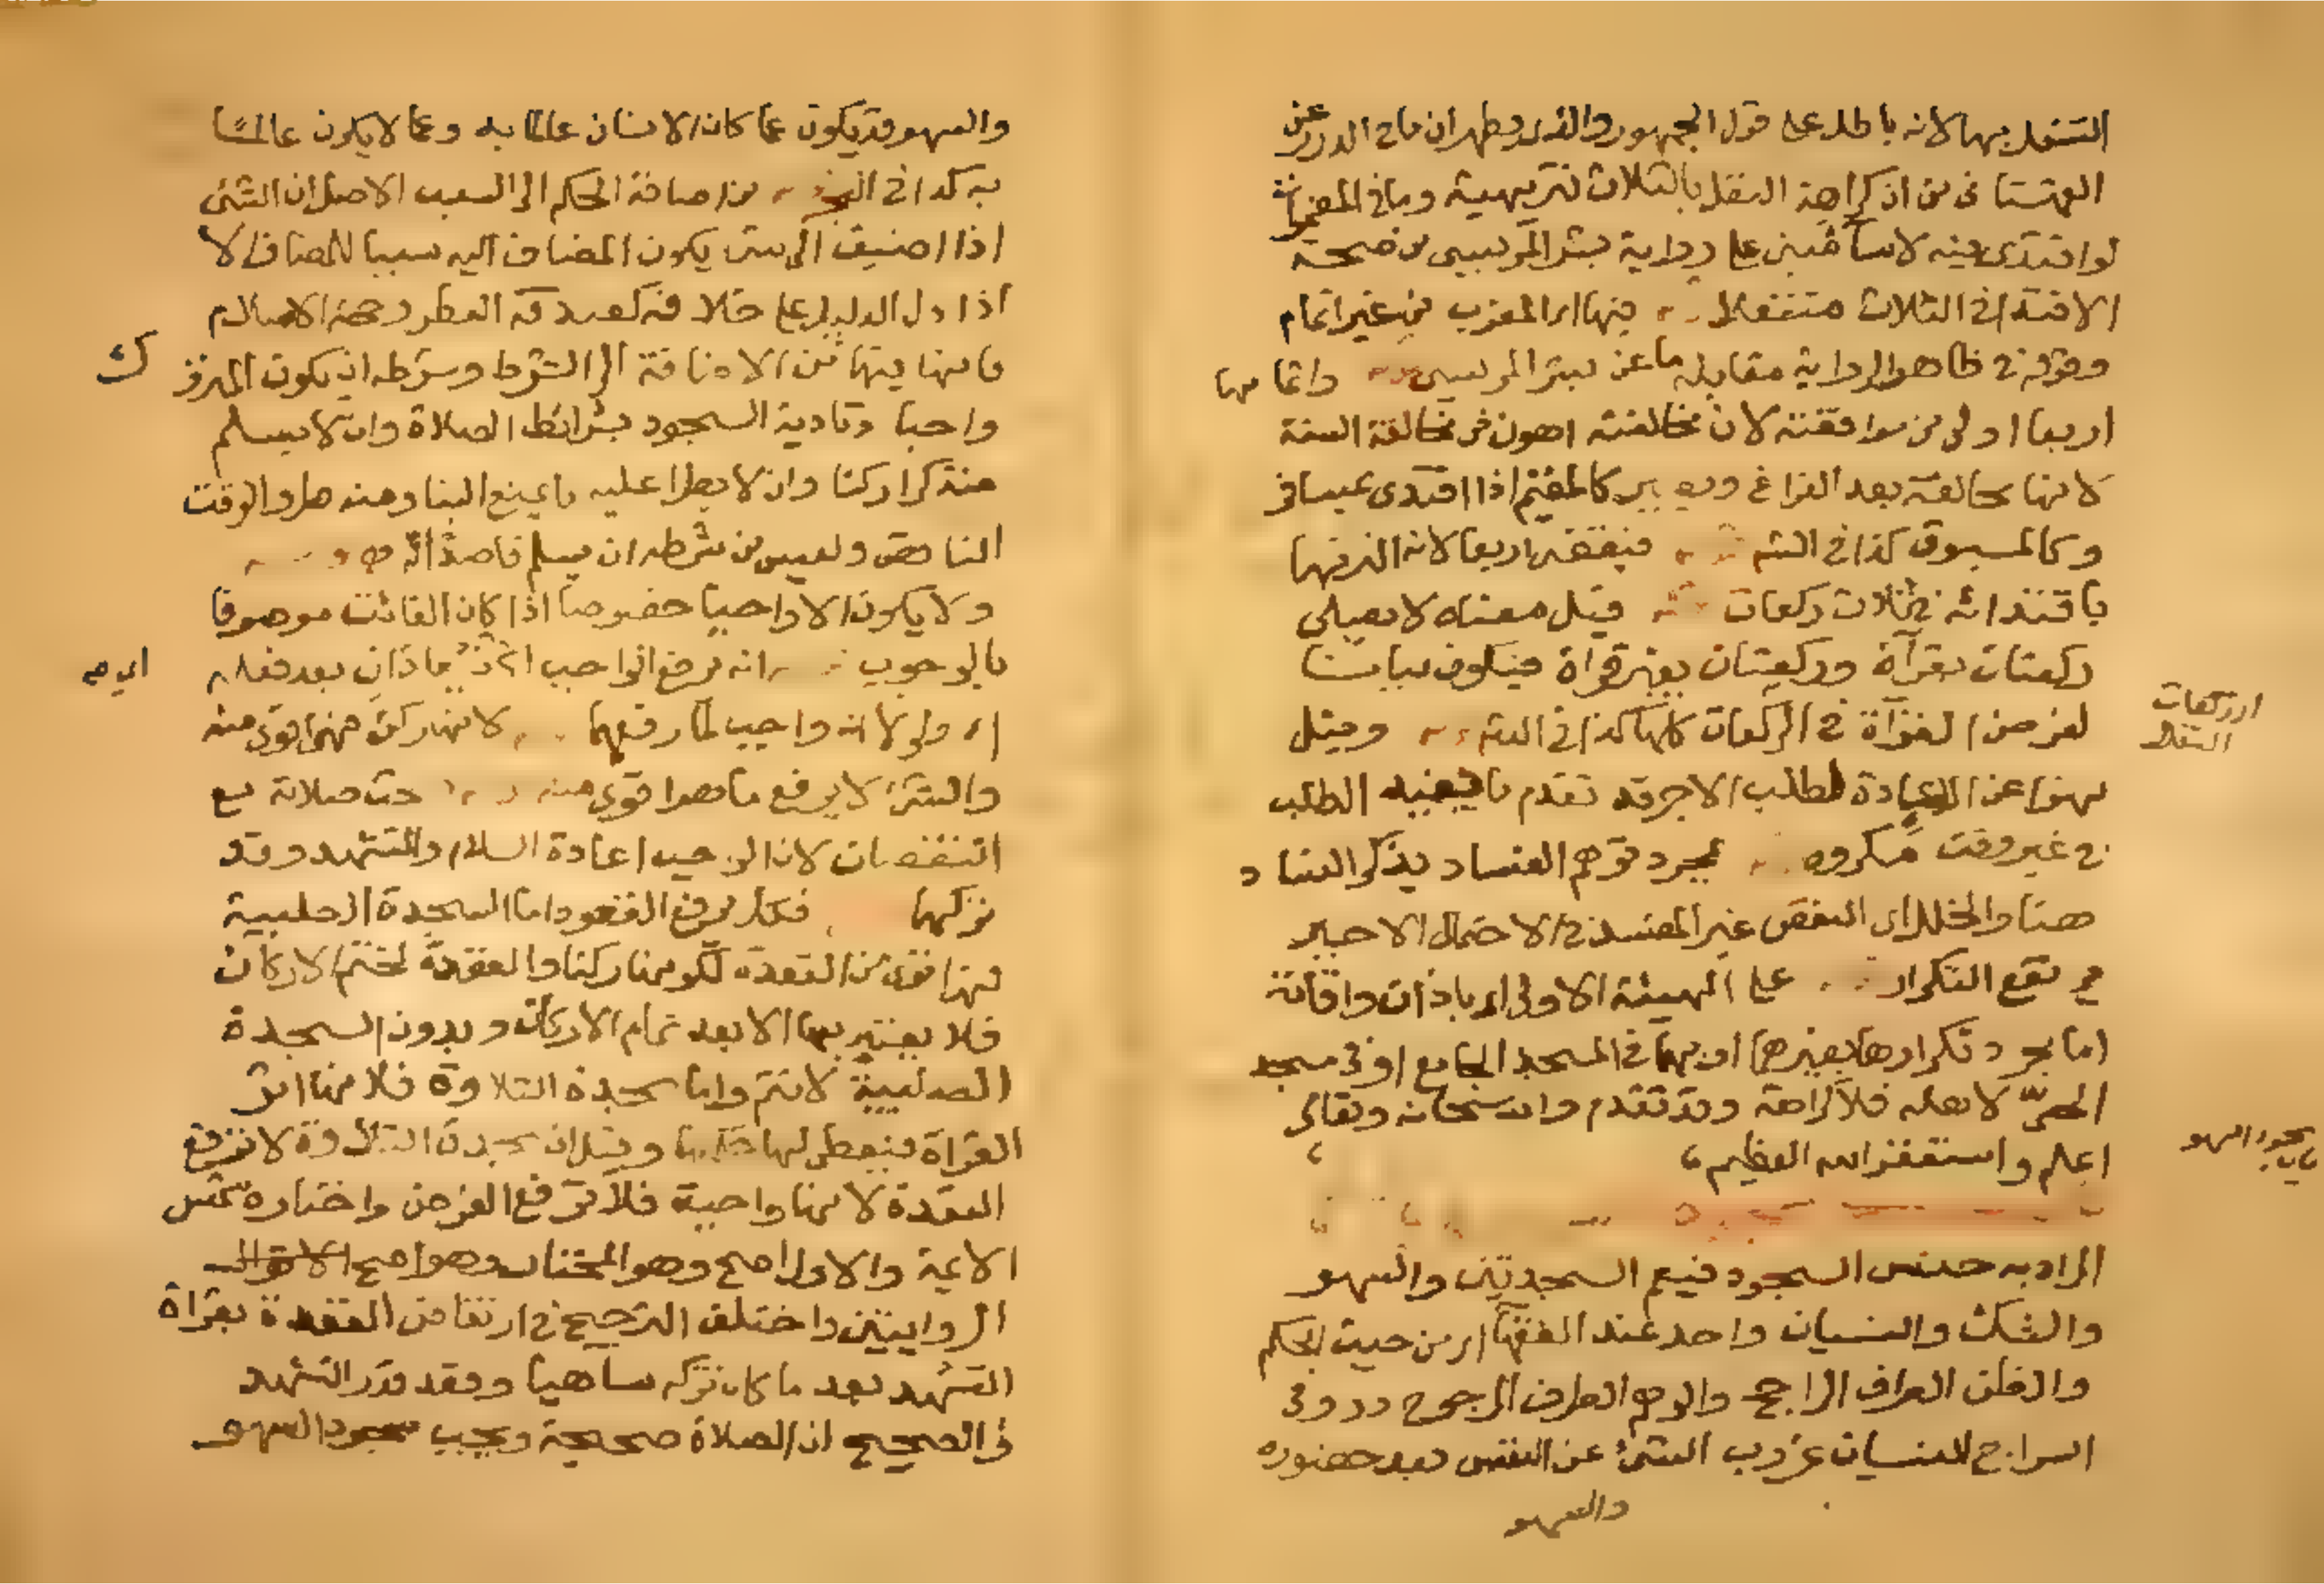 التنفل بها لانه باطل على قول الجمهور والذي يظهر ان ما في الدرر عن
القهستاني من ان كراهة النفل بالثلاث تنزيهية وما في المضمرات
لو اقتدى فيه لاساء مبني على رواية بشر المريسي من صحة
الاقتداء في الثلاث متنفلا فيها اي المغرب من غير اتمام
وقوله في ظاهر الرواية مقابله ما عن بشر المريسي واتمامها
اربعا اولى من موافقته لان مخالفته اهون من مخالفة السنة
لانها مخالفة بعد الفراغ ويصير كالمقيم اذا اقتدى بمسافر
وكالمسبوق كذا في فيقضي اربعا لانه التزمها
باقتدائه ثلاث ركعات قيل معناه لا يصلي
ركعتان بقرآة وركعتان بغير قراة فيكون بيانا
لفرض القرآة في الركعات كلها كذا في وقيل
اي ركعات
النفل
نهوا عن الاعادة لطلب الاجر قد تقدم ما يفيد الطلب
في غير وقت مكروه بمجرد توهم الفساد يذكر الفساد
هنا والخلل اي النقص غير المفسد في الاحتمال الاخير
تقع التكرار على الهيئة الاولى اي باذان واقامة
اما مجرد تكرارها بغيرهما او بهما في المسجد الجامع او في مسجد
الحي لا اهله فلا كراهة وقد تقدم والله سبحانه وتعالى
اعلم واستغفر الله العظيم
باب سجود السهو
المراد به جنس السجود فيعم السجدتين والسهو
والشك والنسيان واحد عند الفقهاء اي من حيث الحكم
والظن الطرف الراجح والوهم الطرف المرجوح وفي
السراج النسيان عزوب الشئ عن النفس بعد حضوره
والسهو
والسهو قد يكون عما كان الانسان عالما به وعما لا يكون عالما
به كذا في من اضافة الحكم الى السبب الاصل ان الشئ
اذا اضيف الى شئ يكون المضاف اليه سببا للمضاف الا
اذا دل الدليل على خلافه كصدقة الفطر وحجة الاسلام
فانها فيهما من الاضافة الى الشرط وشرطه ان يكون المتروك
واجبا وتادية السجود بشرائط الصلاة وان لا يسلم
متذكرا ركنا وان لا يطرا عليه ما يمنع البناء ومنه طرو الوقت
الناقص وليس من شرطه ان يسلم قاصدا
ولا يكون الا واجبا خصوصا اذا كان الفائت موصوفا
بالوجوب انه يرفع الواجب بعد فعله
اي ولولا انه واجب لما رفعهما لانها ركن فهو اقوى منه
والشئ لا يرفع ما هو اقوى منه صلاته مع
النقصان لان الواجب اعادة السلام والتشهد وقد
تركهما فكل يرفع القعود اما السجدة الصلبية
فهو اقوى من القعدة لكونها ركنا والقعدة لختم الاركان
فلا يعتبر بها الا بعد تمام الاركان وبدون السجدة
الصلبية لا تتم واما سجدة التلاوة فلانها اثر
القراة فيعطى لها حكمها وقيل ان سجدة التلاوة لا ترفع
القعدة لانها واجبة فلا ترفع الفرض واختاره شمس
الايمة والاول اصح وهو المختار وهو اصح الاقوال
الروايتين واختلف الترجيح في ارتفاض القعدة بقراة
التشهد بعد ما كان تركه ساهيا وقعد قدر التشهد
في الصحيح ان الصلاة صحيحة ويجب سجود السهو